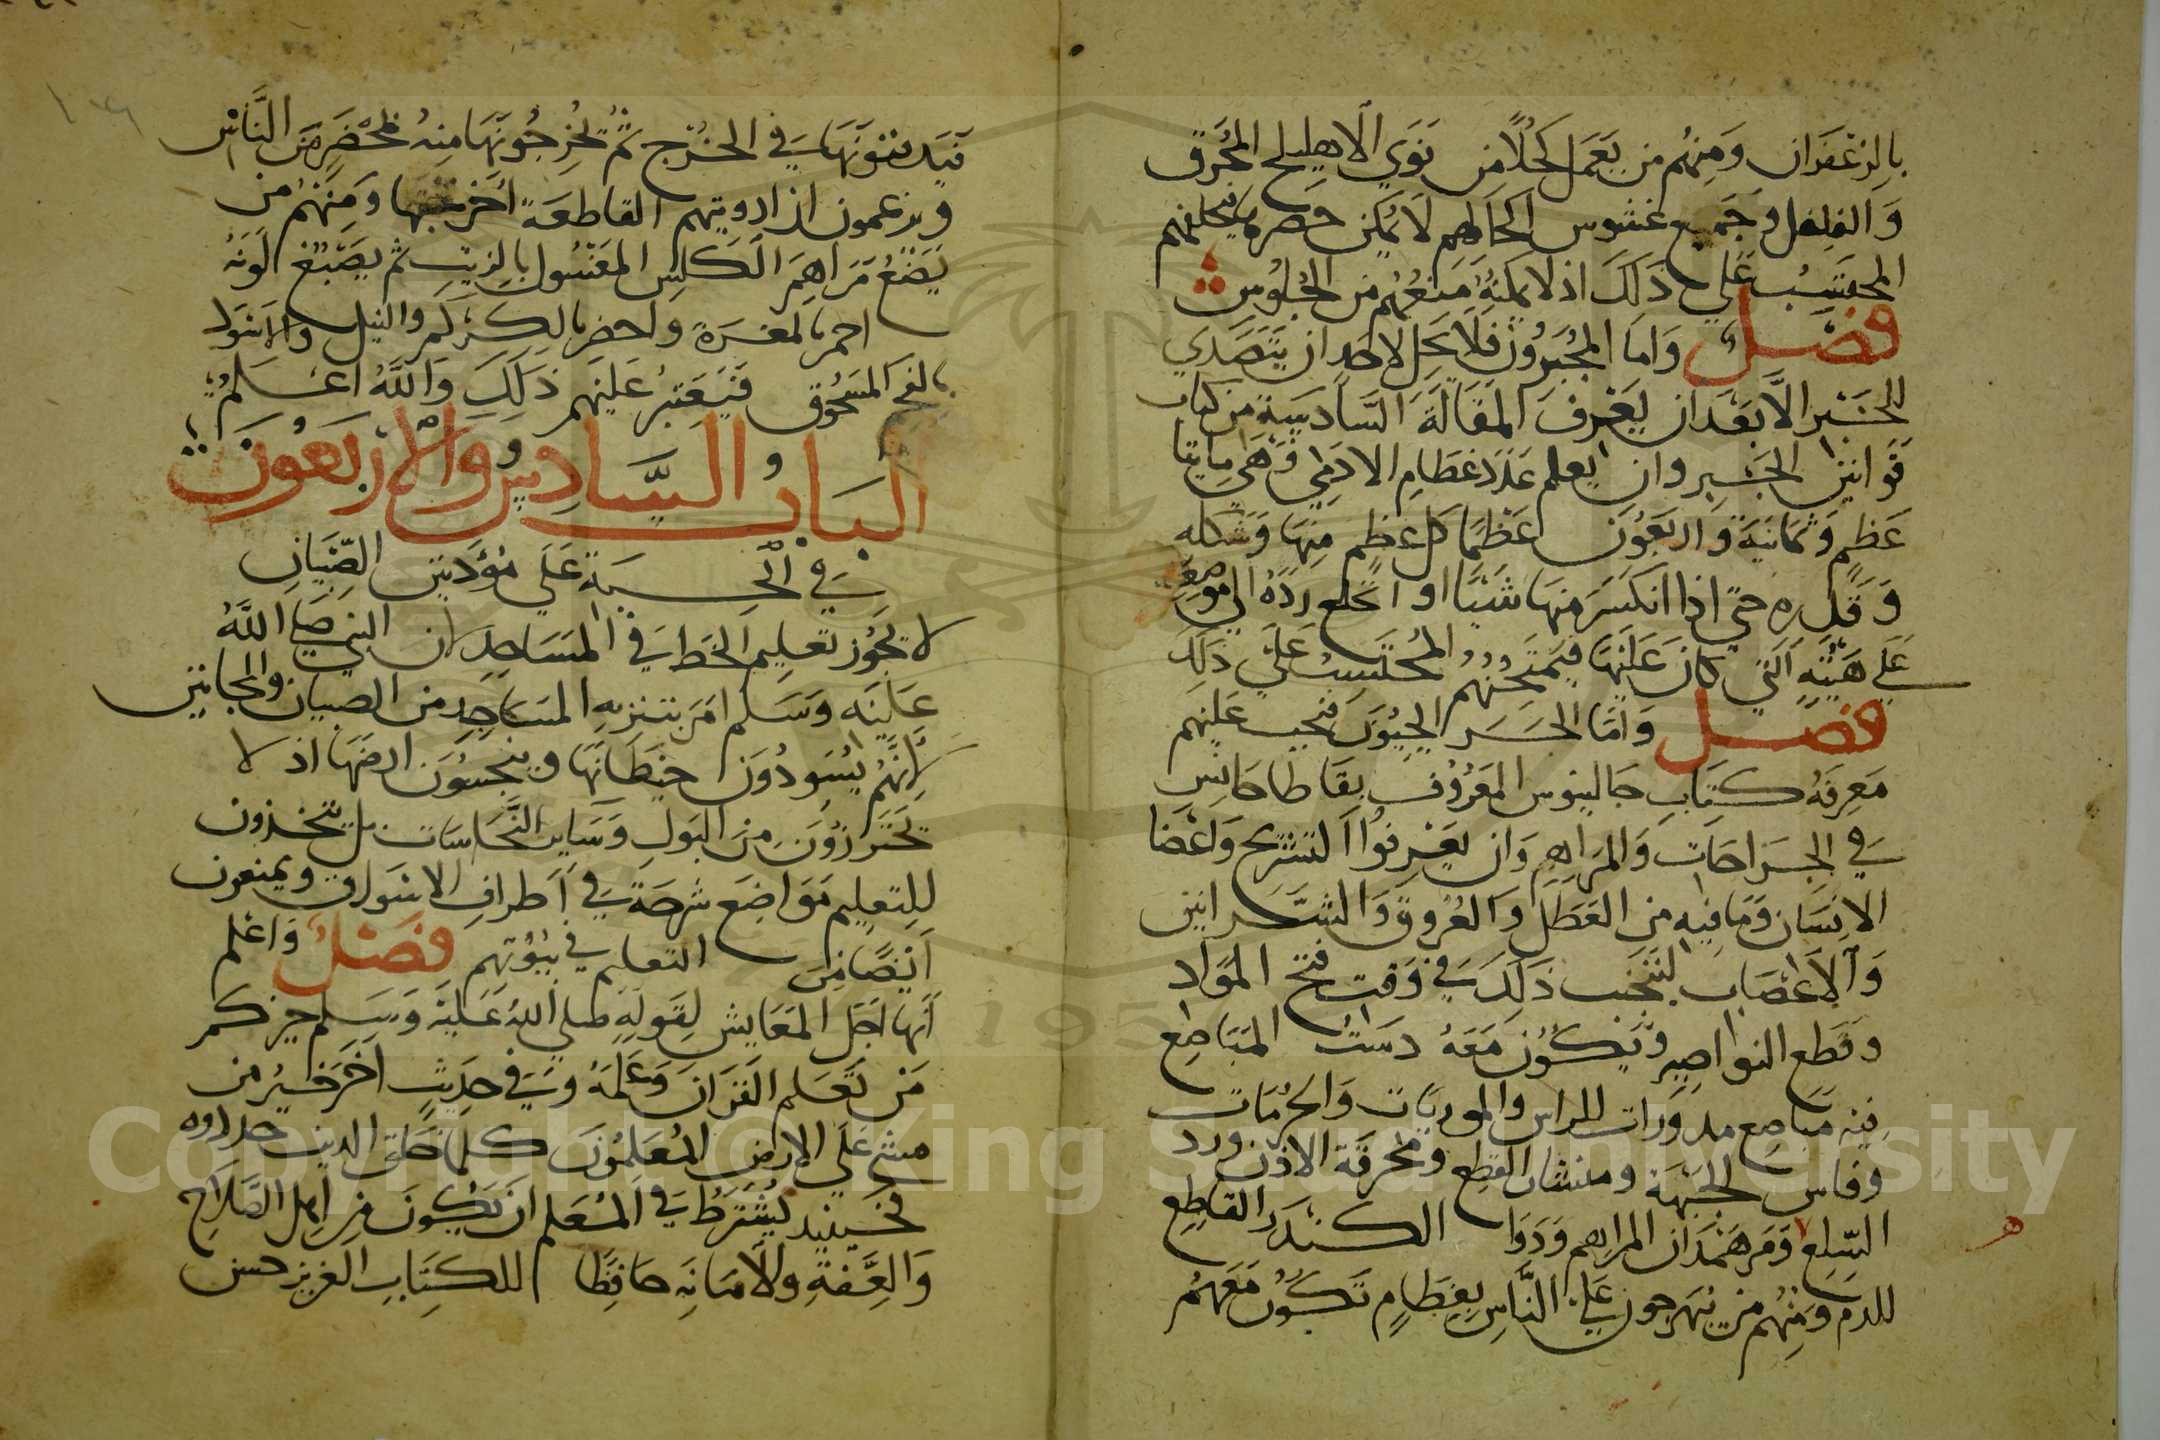 بالزعفران ومنهم من يعمل كحلا من نوي الاهليلج المحرق
والفلفل وجميع غشوش اكحالهم لا يمكن حصرها فيحلفهم
المحتسب علي ذلك اذ لا يمكنه منعهم من الجلوس
فصل واما المجبرون فلا يحل لاحد ان يتصدي
للجبر الا بعد ان يعرف المقالة السادسة من كتاب
قوانين الجبر وان يعلم عدد عظام الادمي وهي مايتا
عظم وثمانية واربعون عظما كل عظم منها وشكله
وقدره حتي اذا انكسر منها شيئا او انخلع رده الي موضعه
علي هيئته التي كان عليها فيمتحنهم المحتسب علي ذلك
فصل واما الجرايحيون فيجب عليهم
معرفة كتاب جالينوس المعروف بقاطاجانس
في الجراحات والمراهم وان يعرفوا التشريح واعضا
الانسان وما فيه من العضل والعروق والشرايين
والاعصاب لتجنب ذلك في وقت فتح المواد
وقطع النواصير ويكون معه دست المباضع
فيه مباضع مدورات الراس والموربات والحربات
وفاس الجبهة ومنشار القطع ومخرقة الاذن وورد
السلع ومرهمدان المراهم ودوا الكندر القاطع
للدم ومنهم من يبهرجون علي الناس بعظام تكون معهم
فيدفنونها في الجرح ثم يخرجونها منه بمحضر من الناس
ويزعمون ان ادويتهم القاطعة اخرجتها ومنهم من
يضع مراهم الكلس المغسول بالزيت ثم يصبغ لونه
احمر بالمغرة واخضر بالكركم والنيل والاسود
بالفحم المسحوق فيعتبر عليهم ذلك والله اعلم
الباب السادس والاربعون
في الحسبة علي مؤدبين الصبيان
لا يجوز تعليم الخط في المساجد لان النبي صلي الله
عليه وسلم امر بتنزيه المساجد من الصبيان والمجانين
لانهم يسودون حيطانها وينجسون ارضها اذ لا
يحترزون من البول وساير النجاسات بل يتخذون
للتعليم مواضع شرحة في اطراف الاسواق ويمنعون
ايضا من التعليم في بيوتهم فصل واعلم
انها اجل المعايش لقوله صلي الله عليه وسلم خيركم
من تعلم القران وعلمه وفي حديث اخر خير من
مشي علي الارض المعلمون كلما خلق الدين جددوه
فحينيد يشترط في المعلم ان يكون من اهل الصلاح
والعفة والامانه حافظا للكتاب العزيز حسن